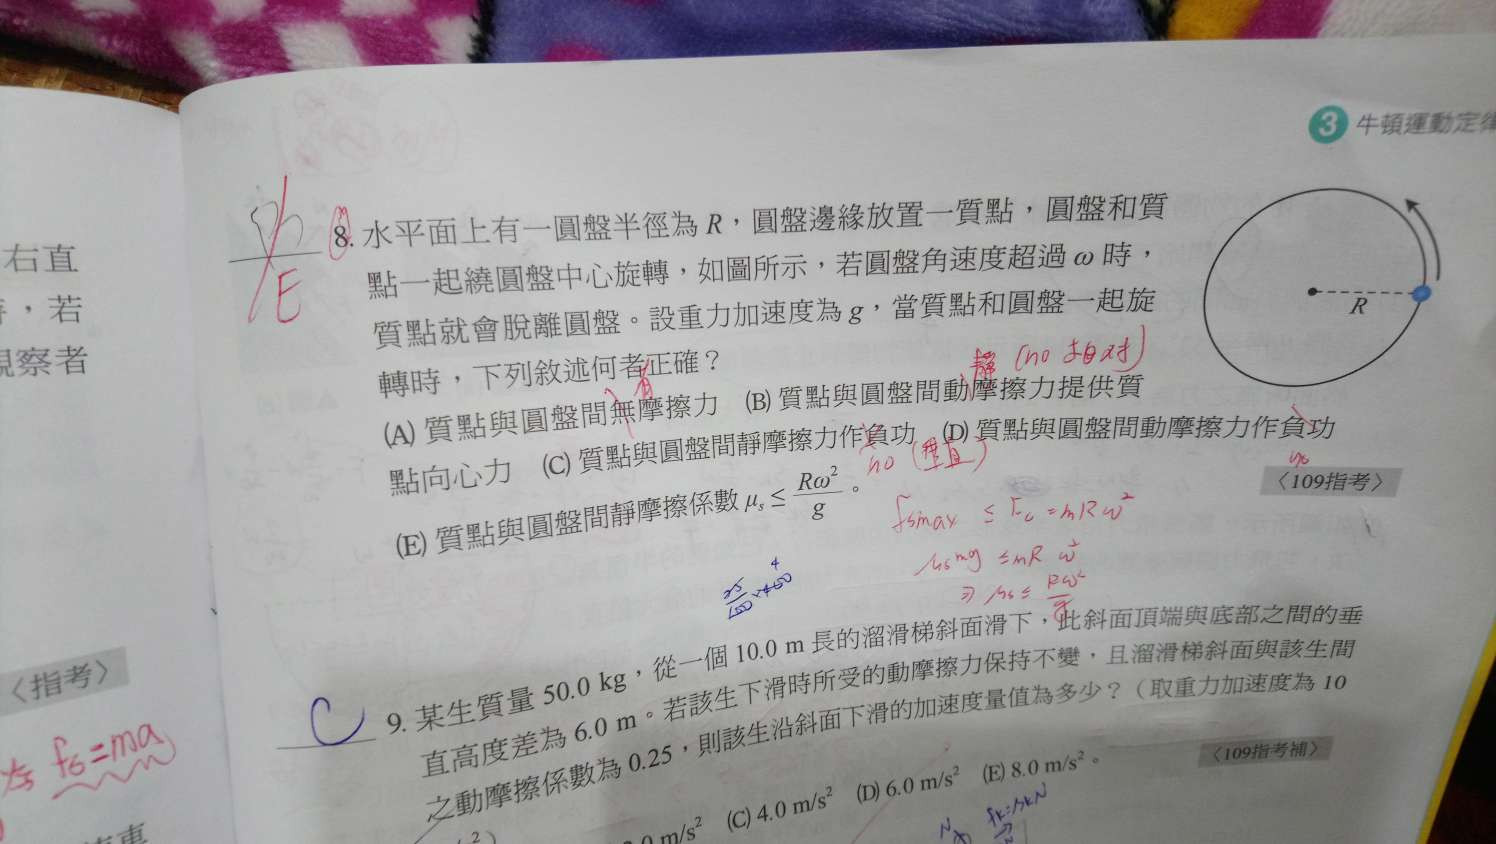 3 牛頓運動定律
右直
，若
視察者
〈指考〉
fs=ma
E
8. 水平面上有一圓盤半徑為 R，圓盤邊緣放置一質點，圓盤和質
點一起繞圓盤中心旋轉，如圖所示，若圓盤角速度超過 ω 時，
質點就會脫離圓盤。設重力加速度為 g，當質點和圓盤一起旋
轉時，下列敘述何者正確？
有
靜 (no 相對)
(A) 質點與圓盤間無摩擦力 (B) 質點與圓盤間動摩擦力提供質
點向心力 (C) 質點與圓盤間靜摩擦力作負功 (D) 質點與圓盤間動摩擦力作負功
no (垂直)
no
(E) 質點與圓盤間靜摩擦係數 μs ≤ Rω²/g。
〈109指考〉
fsmax ≤ Fc = mRω²
μsmg ≤ mRω²
⇒ μs ≤ Rω²/g
R
25/100 × 400 4
C
9. 某生質量 50.0 kg，從一個 10.0 m 長的溜滑梯斜面滑下，此斜面頂端與底部之間的垂
直高度差為 6.0 m。若該生下滑時所受的動摩擦力保持不變，且溜滑梯斜面與該生間
之動摩擦係數為 0.25，則該生沿斜面下滑的加速度量值為多少？（取重力加速度為 10
〈109指考補〉
.0 m/s² (C) 4.0 m/s² (D) 6.0 m/s² (E) 8.0 m/s²。
N
fk=μkN